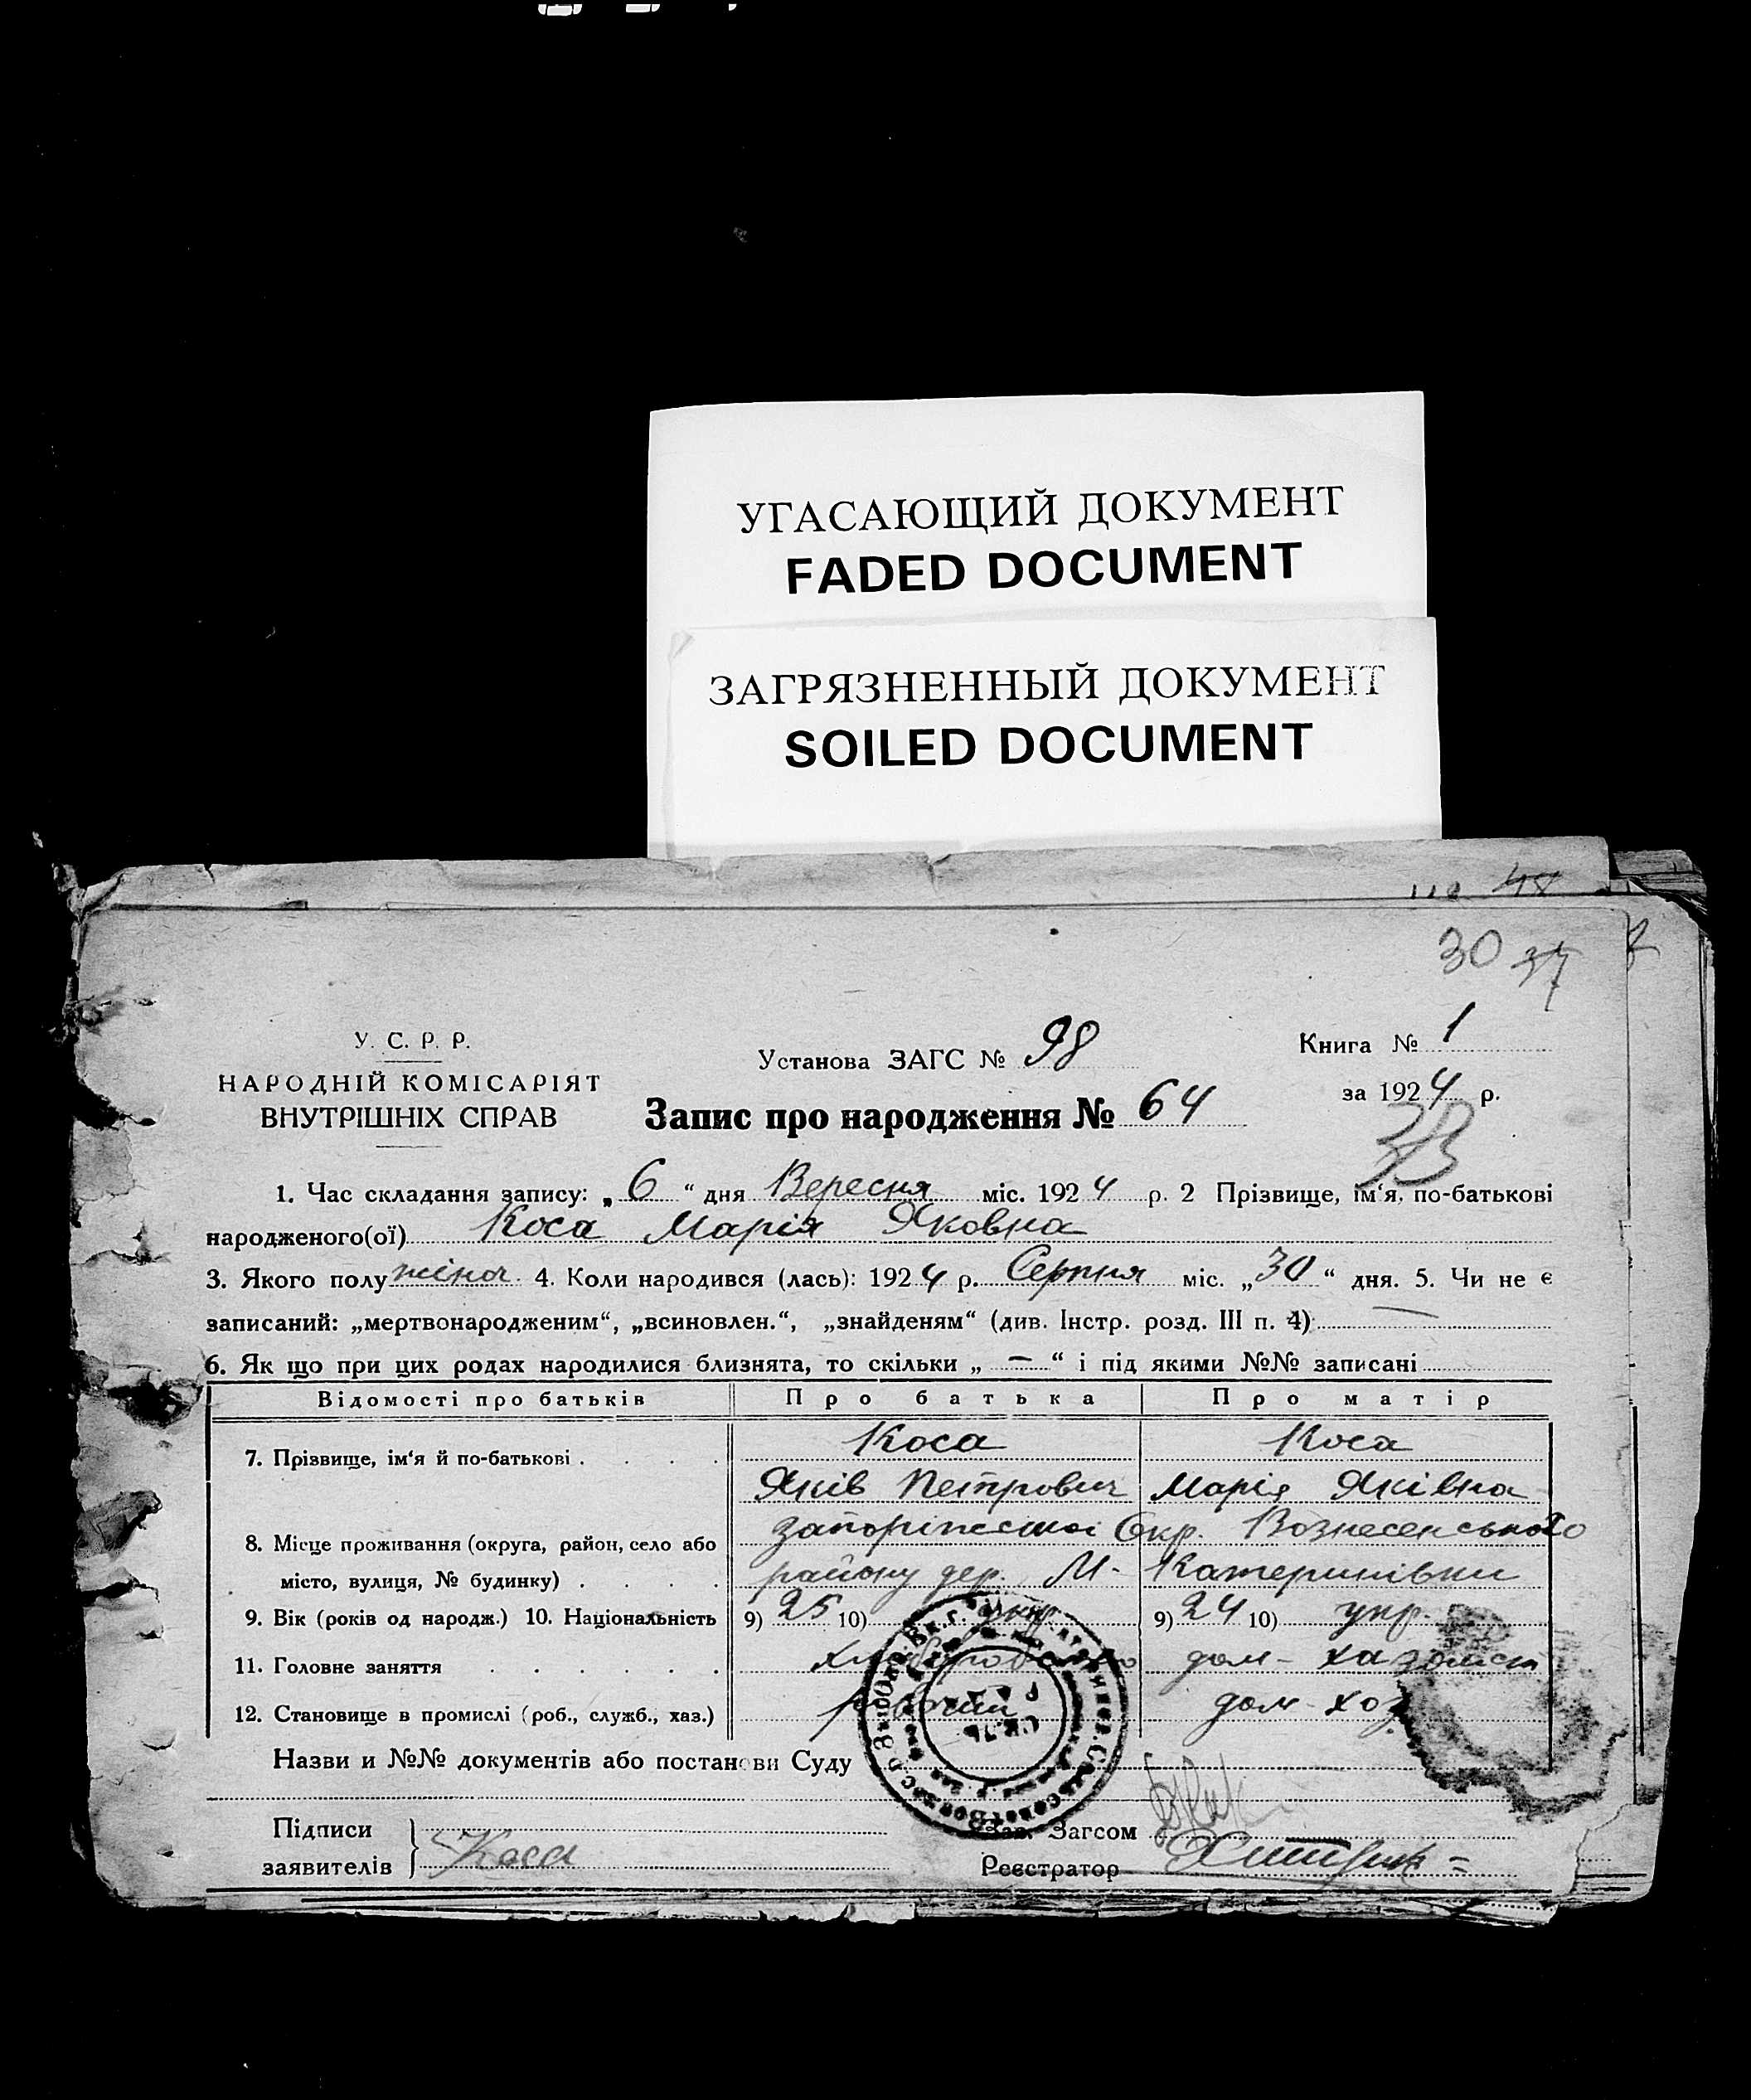 УГАСАЮЩИЙ ДОКУМЕНТ
FADED DOCUMENT
ЗАГРЯЗНЕННЫЙ ДОКУМЕНТ
SOILED DOCUMENT
48
30 37
У. С. Р. Р.
НАРОДНІЙ КОМІСАРІЯТ
ВНУТРІШНІХ СПРАВ
Установа ЗАГС № 98
Книга № 1
за 1924 р.
Запис про народження № 64
33
1. Час складання запису: „ 6 “ дня Вересня міс. 1924 р. 2 Прізвище, ім‘я, по-батькові
народженого(ої) Коса Марія Яковна
3. Якого полу жіноч. 4. Коли народився (лась): 1924 р. Серпня міс. „30“ дня. 5. Чи не є
записаний: „мертвонародженим“, „всиновлен.“, „знайденям“ (див. Інстр. розд. III п. 4) —
6. Як що при цих родах народилися близнята, то скільки „ — “ і під якими №№ записані
Відомості про батьків Про батька Про матір
7. Прізвище, ім‘я й по-батькові . . . . Коса Коса
Яків Петрович Марія Яківна
8. Місце проживання (округа, район, село або Окр. Вознесенського
місто, вулиця, № будинку) . . . . району дер. М- Катеринівки
9. Вік (років од народж.) 10. Національність 9) 25 10) укр. 9) 24 10) укр.
11. Головне заняття . . . . . . дом-
12. Становище в промислі (роб., служб., хаз.) дом-
Назви и №№ документів або постанови Суду
Підписи
заявителів Коса
Зав. Загсом
Реєстратор